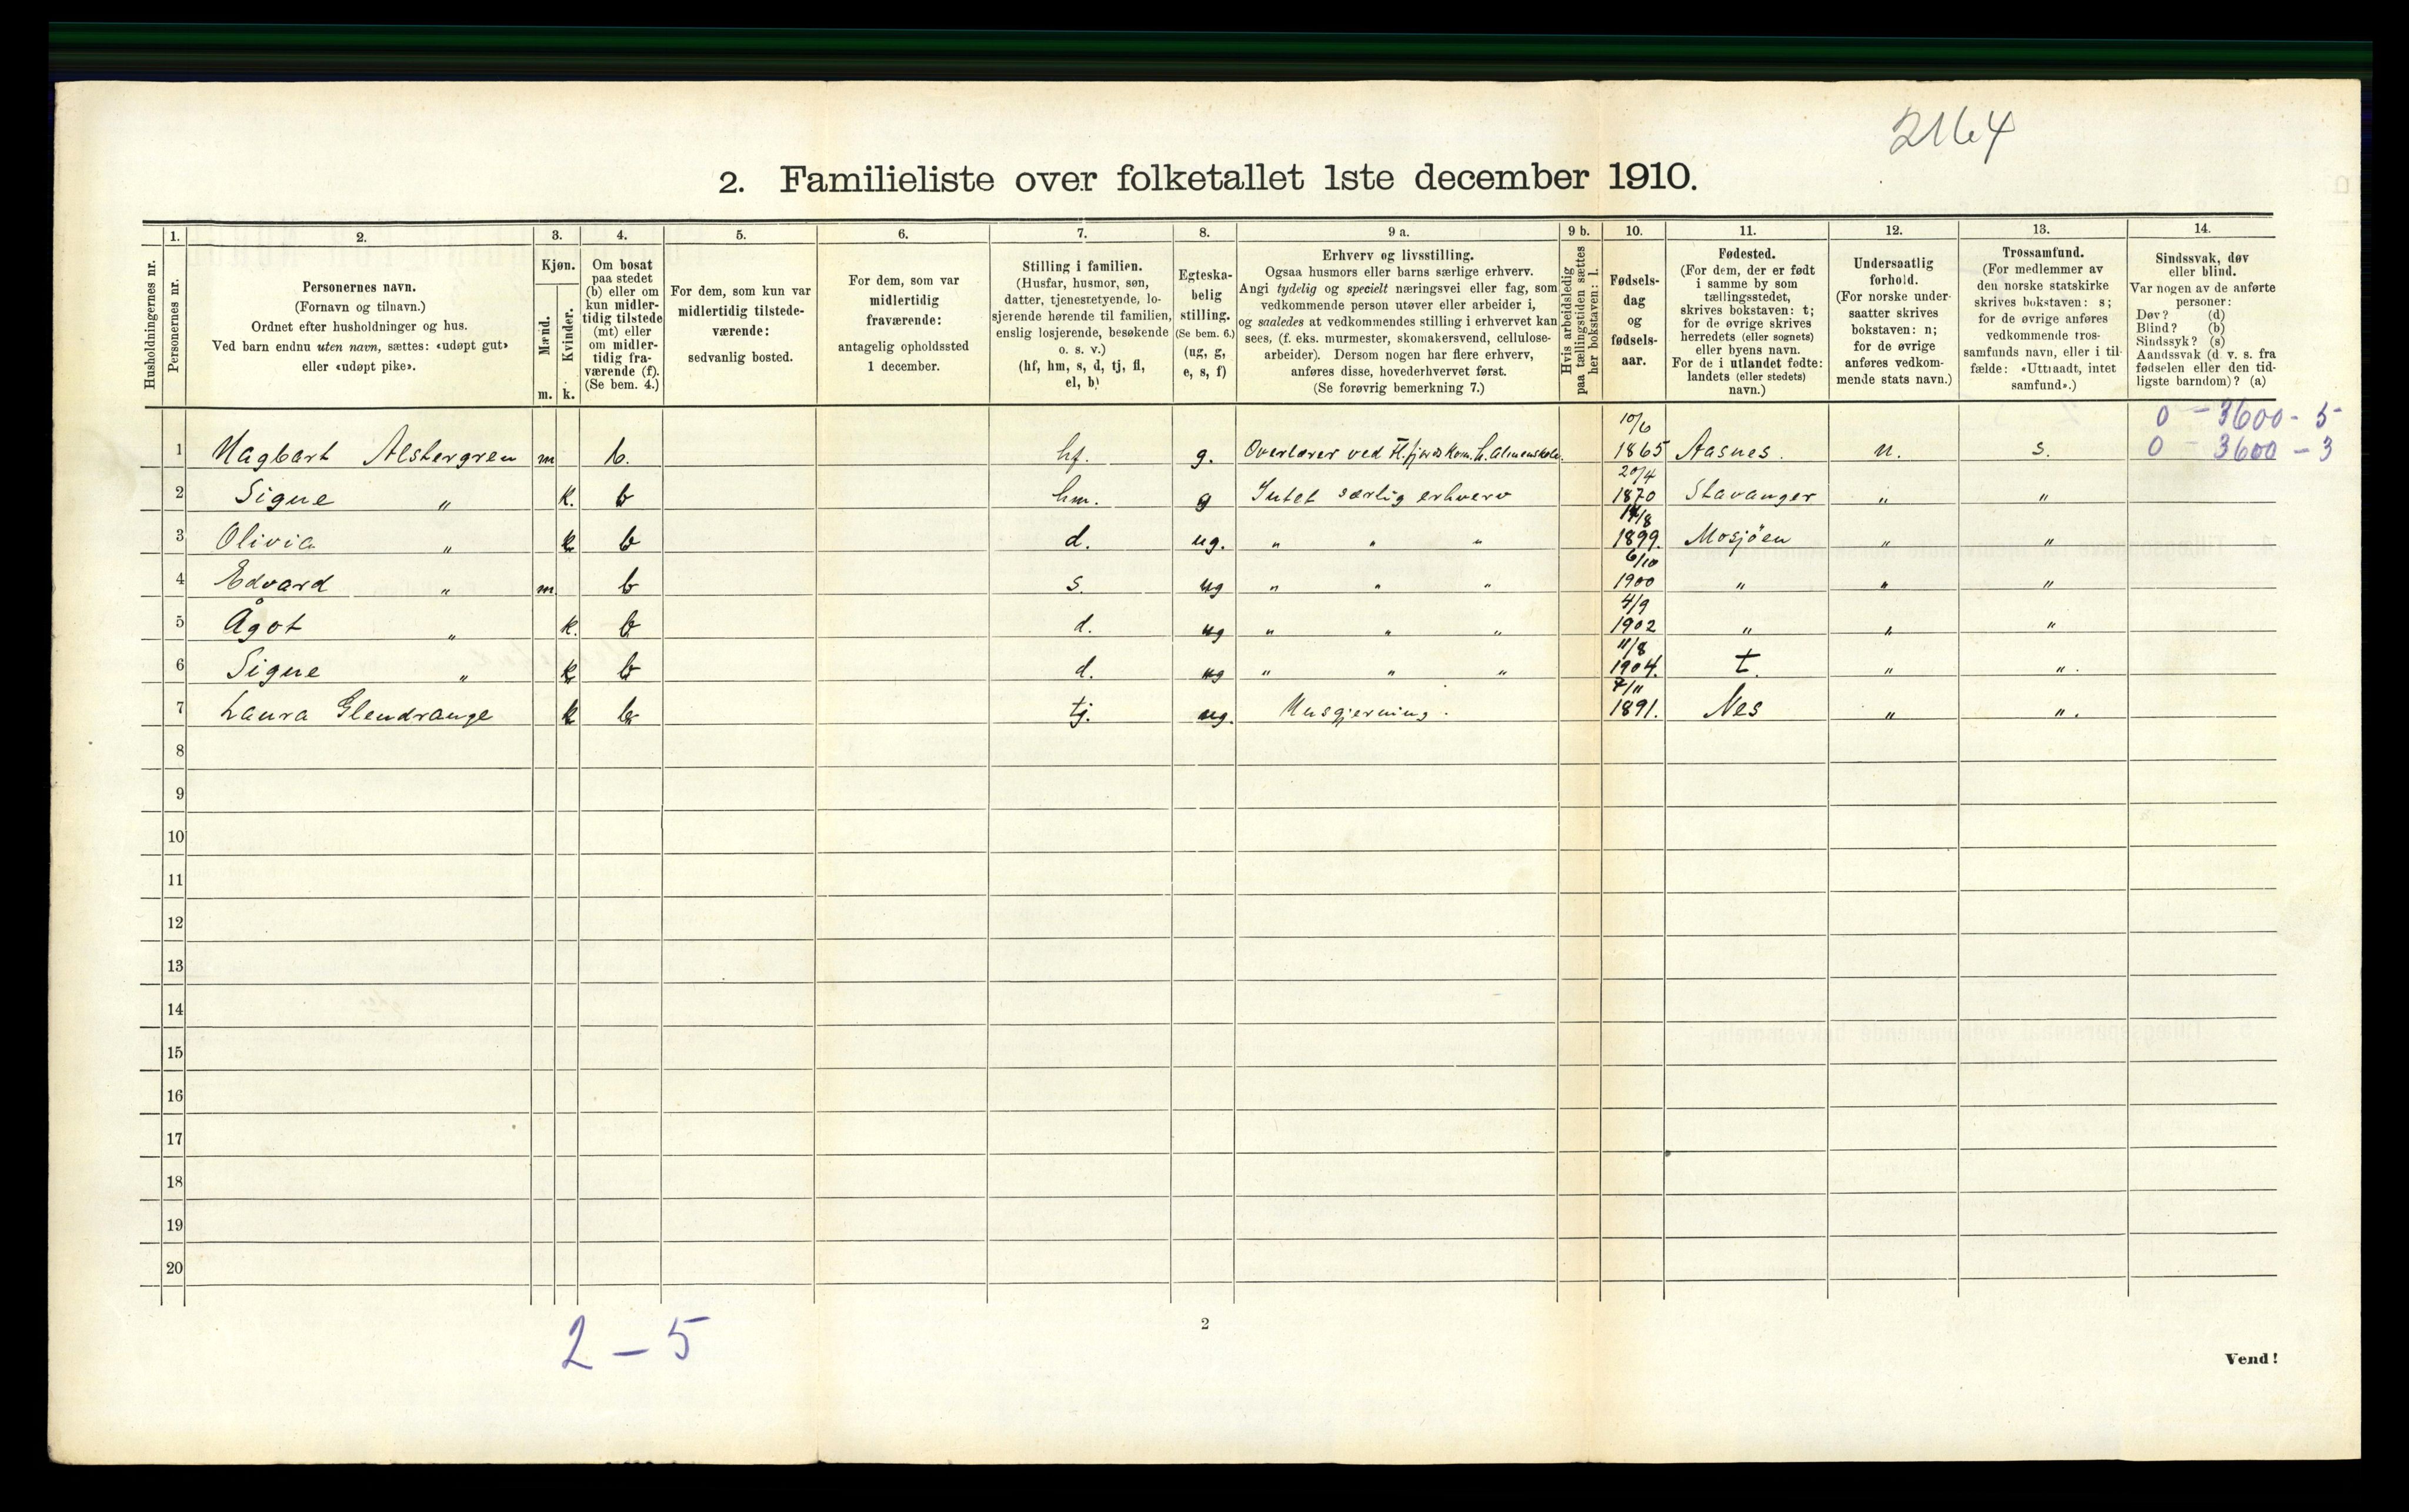 2164
2. Familieliste over folketallet 1ste december 1910.
1. 2. 3. 4. 5. 6. 7. 8. 9 a. 9 b. 10. 11. 12. 13. 14.
Husholdningernes nr.
Personernes nr.
Personernes navn.
(Fornavn og tilnavn.)
Ordnet efter husholdninger og hus.
Ved barn endnu uten navn, sættes: «udøpt gut»
eller «udøpt pike».
Kjøn.
Mænd.
Kvinder.
m. k.
Om bosat
paa stedet
(b) eller om
kun midler-
tidig tilstede
(mt) eller
om midler-
tidig fra-
værende (f).
(Se bem. 4.)
For dem, som kun var
midlertidig tilstede-
værende:
sedvanlig bosted.
For dem, som var
midlertidig
fraværende:
antagelig opholdssted
1 december.
Stilling i familien.
(Husfar, husmor, søn,
datter, tjenestetyende, lo-
sjerende hørende til familien,
enslig losjerende, besøkende
o. s. v.)
(hf, hm, s, d, tj, fl,
el, b)
Egteska-
belig
stilling.
(Se bem. 6.)
(ug, g,
e, s, f)
Erhverv og livsstilling.
Ogsaa husmors eller barns særlige erhverv.
Angi tydelig og specielt næringsvei eller fag, som
vedkommende person utøver eller arbeider i,
og saaledes at vedkommendes stilling i erhvervet kan
sees, (f. eks. murmester, skomakersvend, cellulose-
arbeider). Dersom nogen har flere erhverv,
anføres disse, hovederhvervet først.
(Se forøvrig bemerkning 7.)
Hvis arbeidsledig
paa tællingstiden sættes
her bokstaven: l.
Fødsels-
dag
og
fødsels-
aar.
Fødested.
(For dem, der er født
i samme by som
tællingsstedet,
skrives bokstaven: t;
for de øvrige skrives
herredets (eller sognets)
eller byens navn.
For de i utlandet fødte:
landets (eller stedets)
navn.)
Undersaatlig
forhold.
(For norske under-
saatter skrives
bokstaven: n;
for de øvrige
anføres vedkom-
mende stats navn.)
Trossamfund.
(For medlemmer av
den norske statskirke
skrives bokstaven: s;
for de øvrige anføres
vedkommende tros-
samfunds navn, eller i til-
fælde: «Uttraadt, intet
samfund».)
Sindssvak, døv
eller blind.
Var nogen av de anførte
personer:
Døv? (d)
Blind? (b)
Sindssyk? (s)
Aandssvak (d. v. s. fra
fødselen eller den tid-
ligste barndom)? (a)
0 - 3600 - 5
1 Hagbart Alstergren m b. hf. g. Overlærer ved H.fjords kom. h. almenskole. 10/6 1865 Aasnes. n. s. 0 - 3600 - 3
2 Signe " k. b hm. g Intet særlig erhverv 20/4 1870 Stavanger " "
3 Olivia " k b d. ug. " " " 14/8 1899. Mosjöen " "
4 Edvard " m b s. ug " " " 6/10 1900 " " "
5 Ågot " k. b d. ug " " " 4/9 1902 " " "
6 Signe " k b d. ug " " " 11/8 1904. t. " ".
7 Laura Glendrange k b tj. ug. Husgjerning. 7/11 1891. Nes " ".
8
9
10
11
12
13
14
15
16
17
18
19
20
2 - 5
2
Vend!